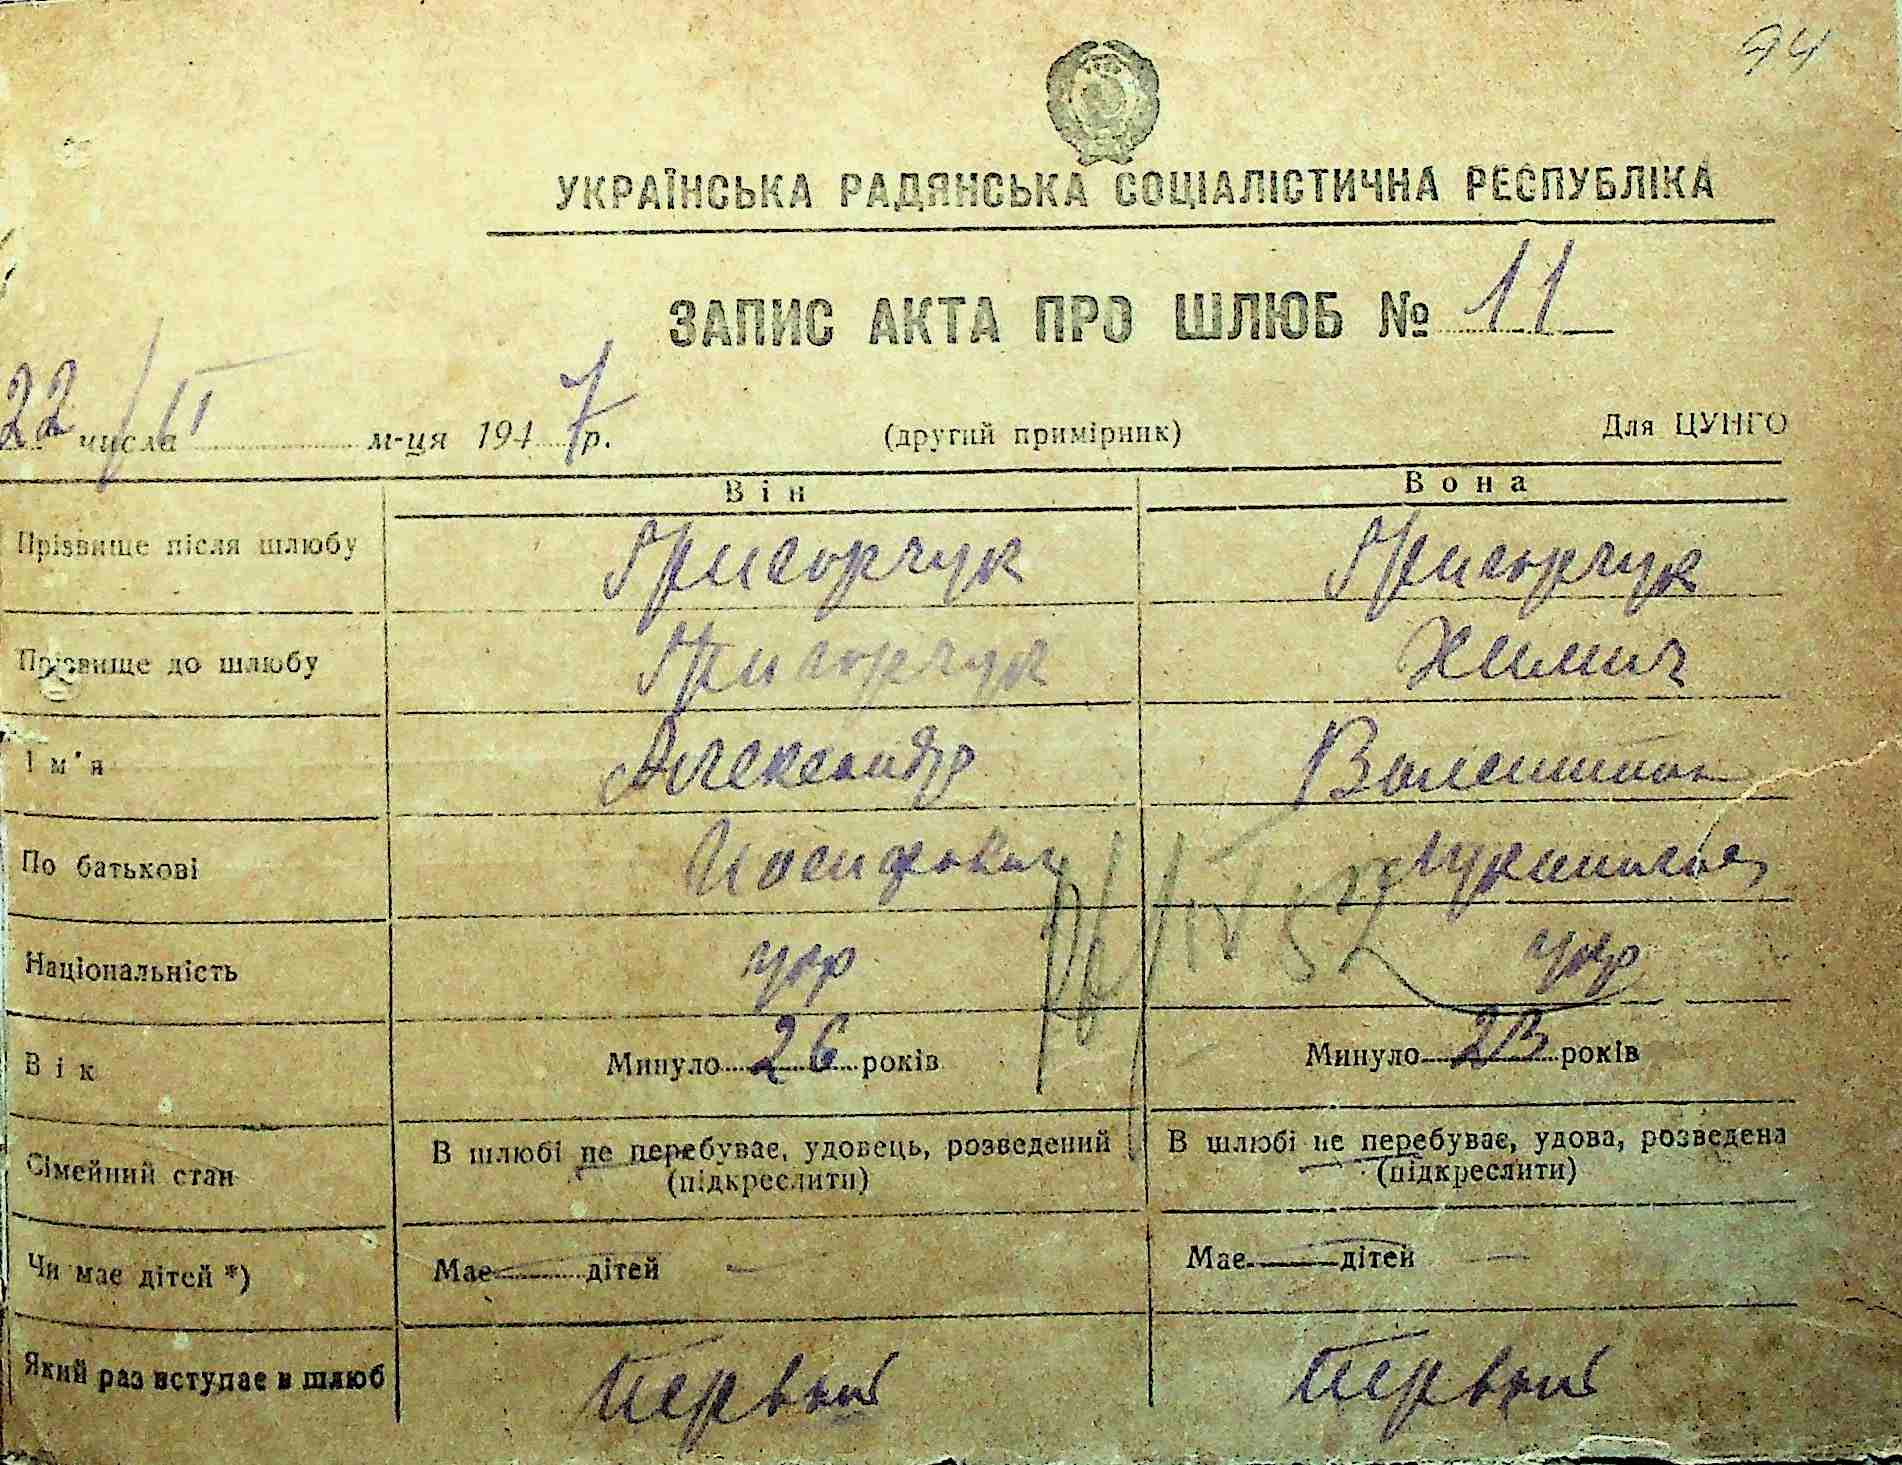 74
УКРАЇНСЬКА РАДЯНСЬКА СОЦІАЛІСТИЧНА РЕСПУБЛІКА
ЗАПИС АКТА ПРО ШЛЮБ № 11
22 числа / II м-ця 1947 р. (другий примірник) Для ЦУНГО
Він Вона
Прізвище після шлюбу Григорчук Григорчук
Прізвище до шлюбу Григорчук Химич
Ім'я Александр Валентина
По батькові Иосифович
Національність укр укр
Вік Минуло 26 років Минуло 23 років
Сімейний стан В шлюбі не перебуває, удовець, розведений В шлюбі не перебуває, удова, розведена
(підкреслити) (підкреслити)
Чи має дітей *) Має — дітей — Має — дітей —
Який раз вступає в шлюб Первый Первый